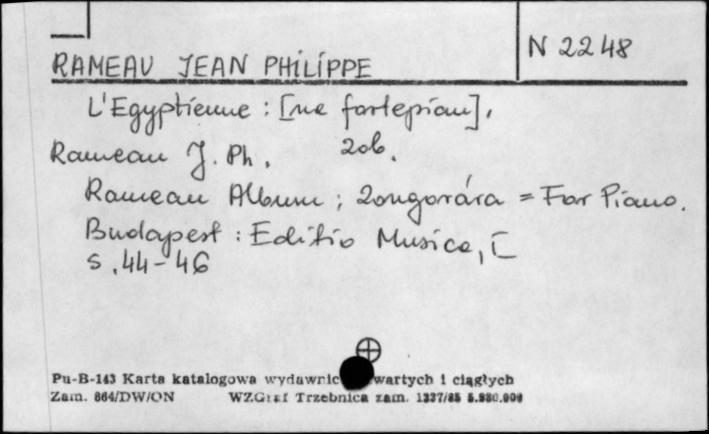 N 2248
RAMEAU JEAN PHILIPPE
L'Egyptienne : [na fortepian],
Rameau J. Ph. zob.
Rameau Album ; Zongorára = For Piano.
Budapest : Editio Musica, [
s. 44-46
Pu-B-143 Karta katalogowa wydawnic wartych i ciągłych
Zam. 864/DW/ON WZGraf Trzebnica zam. 1337/85 5.980.000